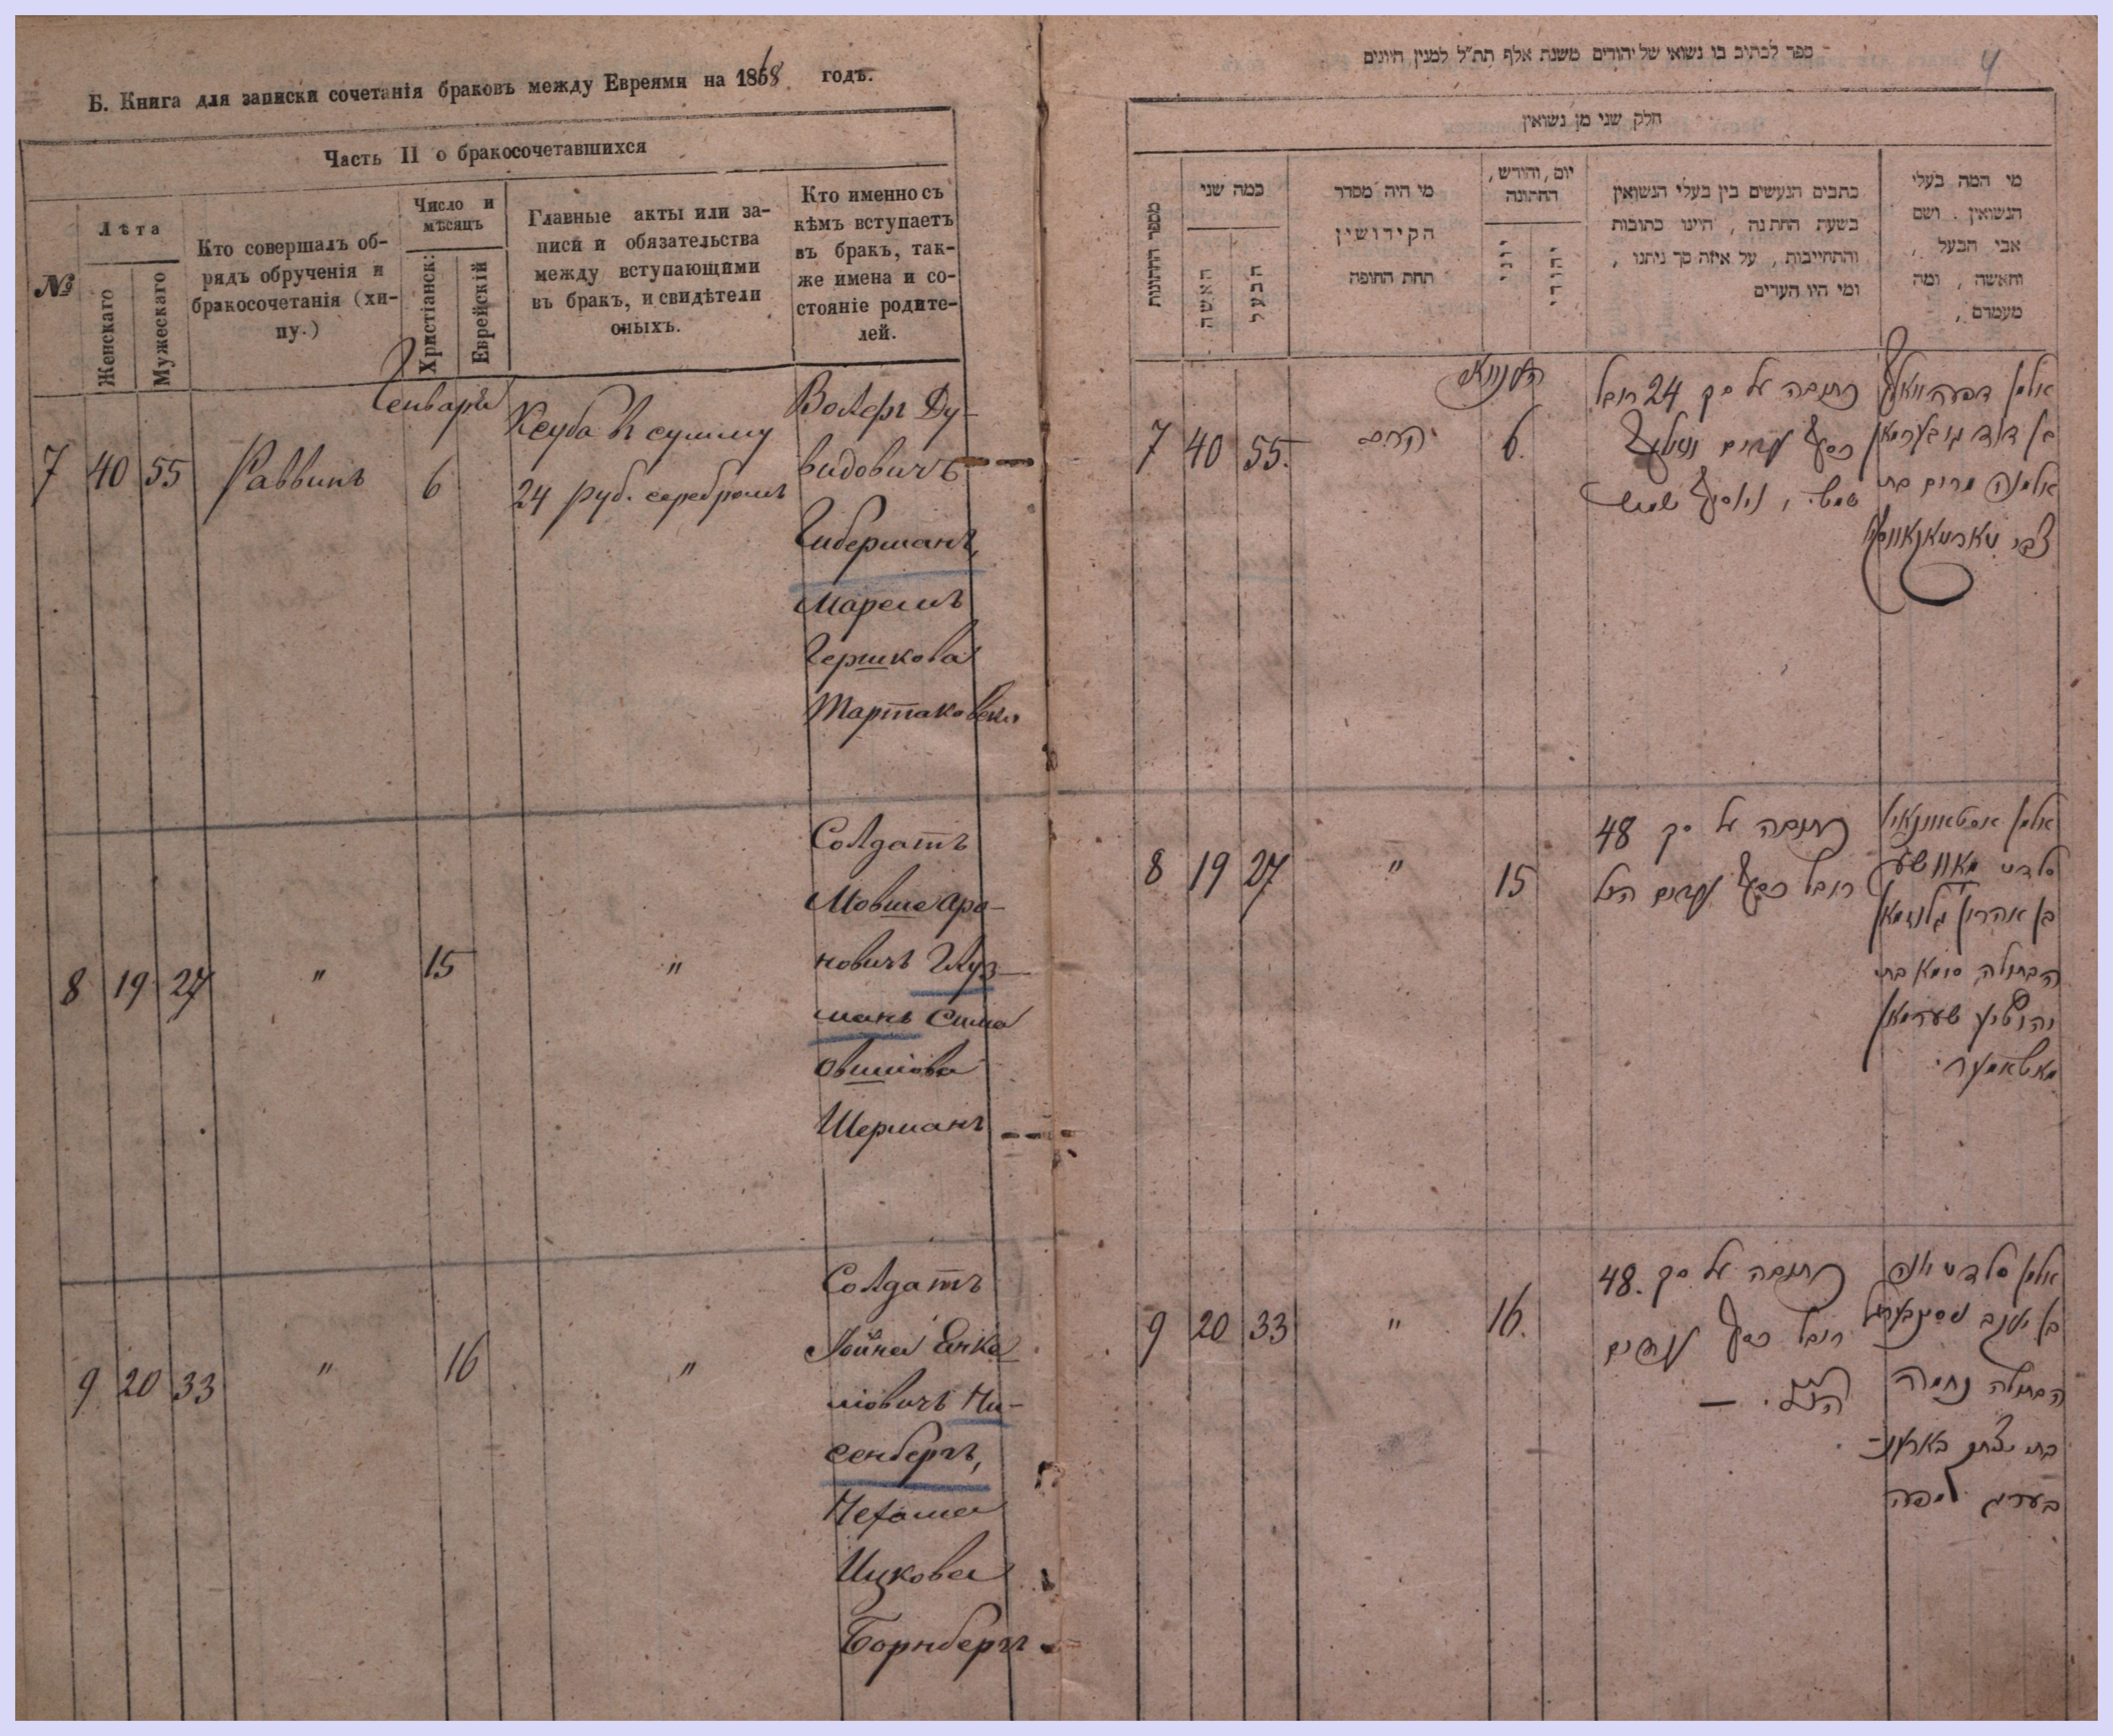 Б. Книга для записки сочетанія браковъ между Евреями на 1868 годъ.
Часть II о бракосочетавшихся
№
Лѣта
Женскаго
Мужескаго
Кто совершалъ об-
рядъ обрученія и
бракосочетанія (хи-
пу.)
Число и
мѣсяцъ
Христіанск:
Еврейскій
Главные акты или за-
писи и обязательства
между вступающими
въ бракъ, и свидѣтели
оныхъ.
Кто именно съ
кѣмъ вступаетъ
въ бракъ, так-
же имена и со-
стояніе родите-
лей.
Генваря
7 40 55 Раввинъ 6
Ксуба въ сумму
24 руб. серебромъ
Волфъ Ду-
видовичъ
Гиберманъ,
Маремъ
Гершкова
Тартаковска
8 19 27 " 15 "
Солдатъ
Мовше Аро-
новичъ Глуз-
манъ Сима
Овшіова
Шерманъ
9 20 33 " 16 "
Солдатъ
Іойна Янке
ліовичъ Ни-
сенбергъ,
Нехама
Ицкова
Борнбергъ
4
ספר לכתוב בו נשואי של יהודים משנת אלף תת״ל למנין היונים
חלק שני מן נשואין
מספר החתונות
כמה שני
האשה
הבעל
מי היה מסדר
הקידושין
תחת החופה
יום, והודש,
החתונה
יוני
יהודי
כתבים הנעשים בין בעלי הנשואין
בשעת החתנה, היינו כתובות
והתחייבות, על איזה סך ניתנו,
ומי היו העדים
מי המה בעלי
הנשואין. ושם
אבי הבעל,
והאשה, ומה
מעמדם,
7 40 55. הרב 6.
כתובה על סך 24 רובל
כסף
אלמנה מרים בת
צבי
8 19 27 " 15
כתובה על סך 48
רובל כסף
בן אהרון גלוזמאן
הבתולה סימא בת
שערמאן
9 20 33 " 16.
כתובה על סך 48.
רובל כסף
הבתולה נחמה
בת יצחק